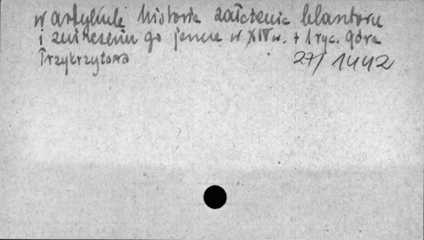 w artykule historia założenia klasztoru
i zniszczenia go jeszcze w XIV w. + 1 ryc. góra
Przykrzytowa 27/1442